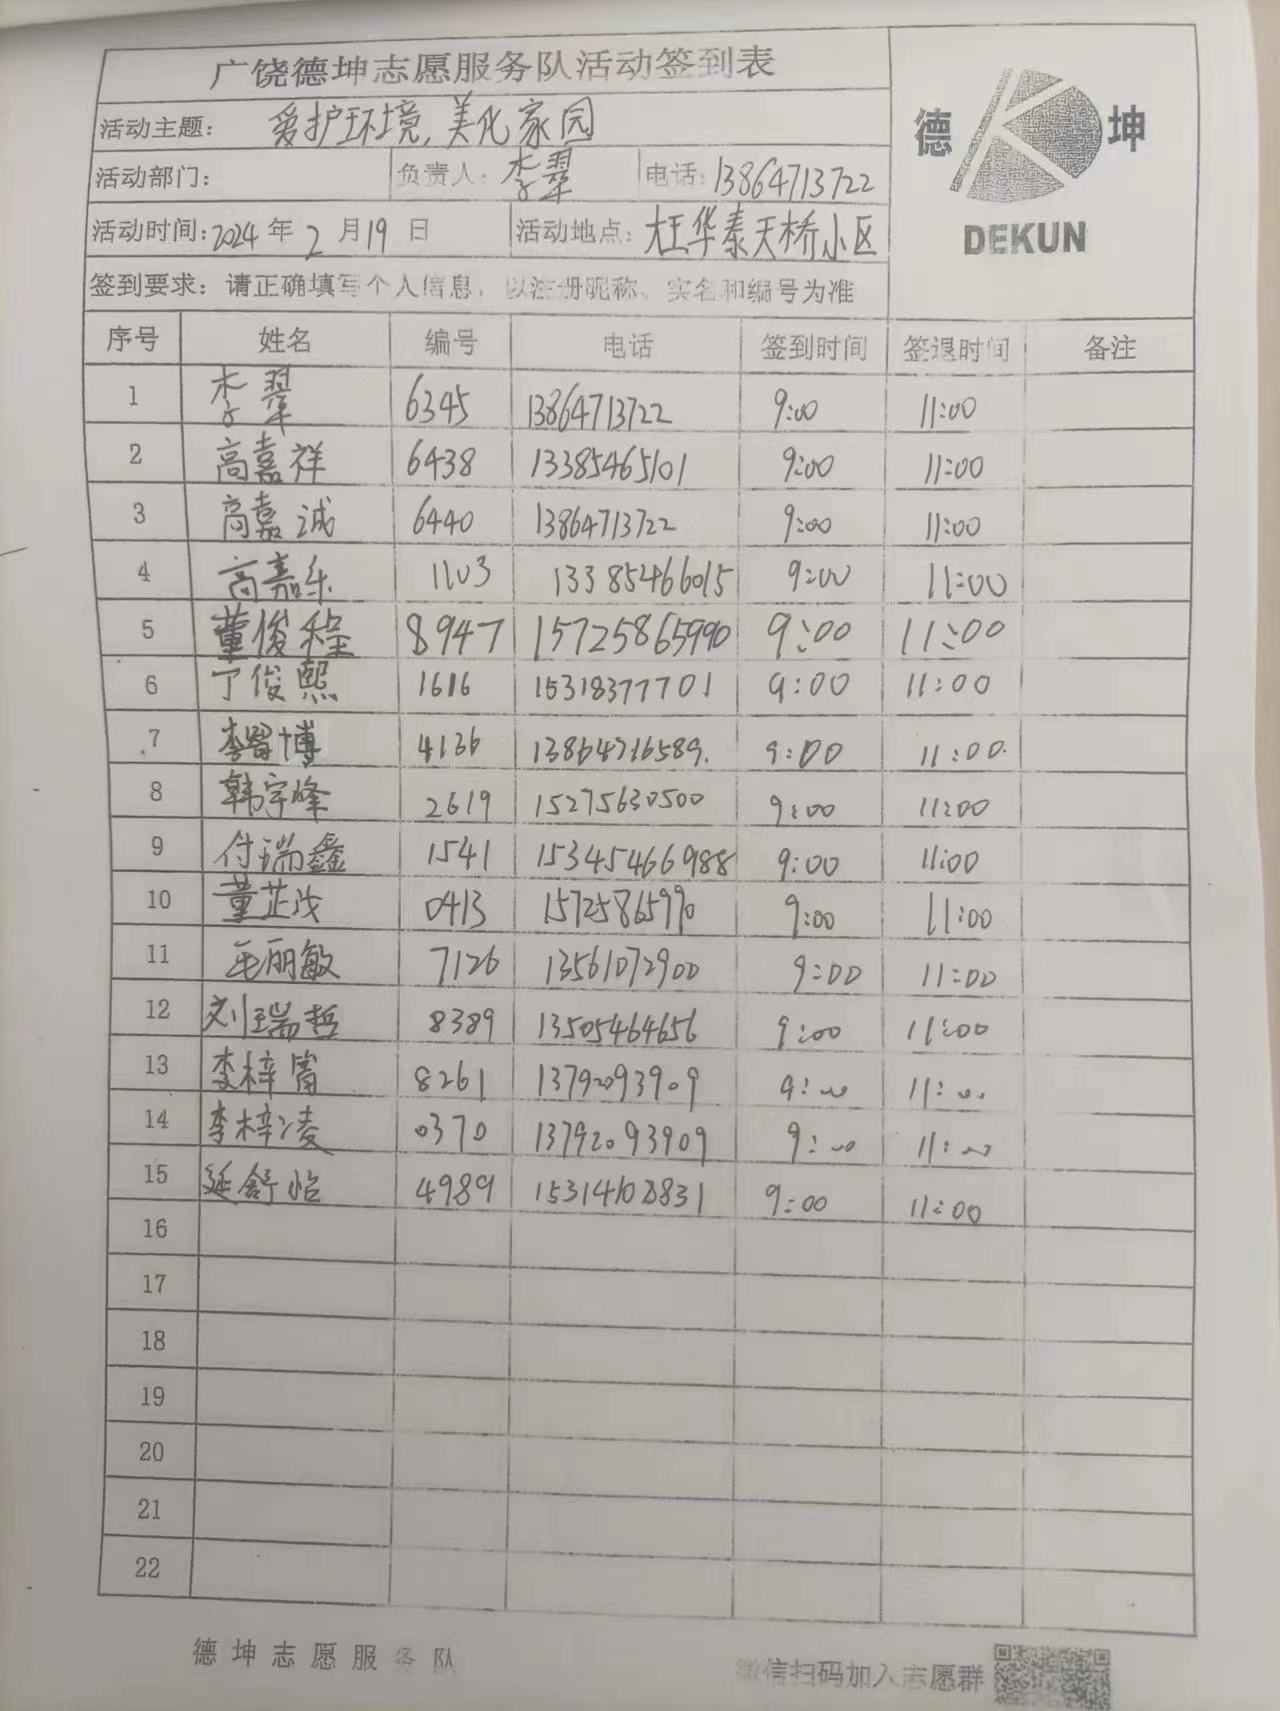 广饶德坤志愿服务队活动签到表
德 坤
DEKUN
活动主题: 爱护环境,美化家园
活动部门: 负责人: 李翠 电话: 13864713722
活动时间: 2024 年 2 月 19 日 活动地点: 大王华泰天桥小区
签到要求: 请正确填写个人信息, 以注册昵称、实名和编号为准
序号 姓名 编号 电话 签到时间 签退时间 备注
1 李翠 6345 13864713722 9:00 11:00
2 高嘉祥 6438 13385465101 9:00 11:00
3 高嘉诚 6440 13864713722 9:00 11:00
4 高嘉乐 1103 13385466015 9:00 11:00
5 董俊程 8947 15725865990 9:00 11:00
6 丁俊熙 1616 15318377701 9:00 11:00
7 李留博 4136 13864716589. 9:00 11:00.
8 韩宇峰 2619 15275630500 9:00 11:00
9 付瑞鑫 1541 15345466988 9:00 11:00
10 董芷茂 0413 15725865990 9:00 11:00
11 丽敏 7126 13561072900 9:00 11:00
12 刘瑞哲 8389 13505464656 9:00 11:00
13 李梓 8261 13792093909 9:00 11:00
14 李梓凌 0370 13792093909 9:00 11:00
15 延舒怡 4989 15314102831 9:00 11:00
16
17
18
19
20
21
22
德坤志愿服务队
微信扫码加入志愿群